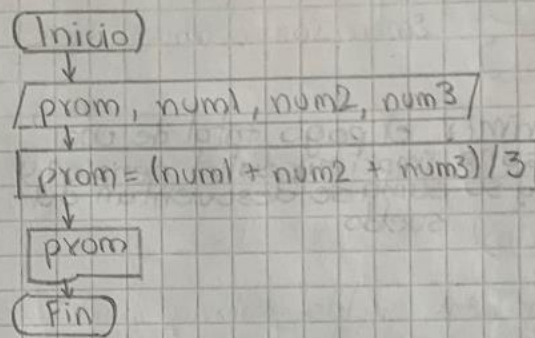 Inicio
prom, num1, num2, num3
prom = (num1 + num2 + num3) / 3
prom
Fin